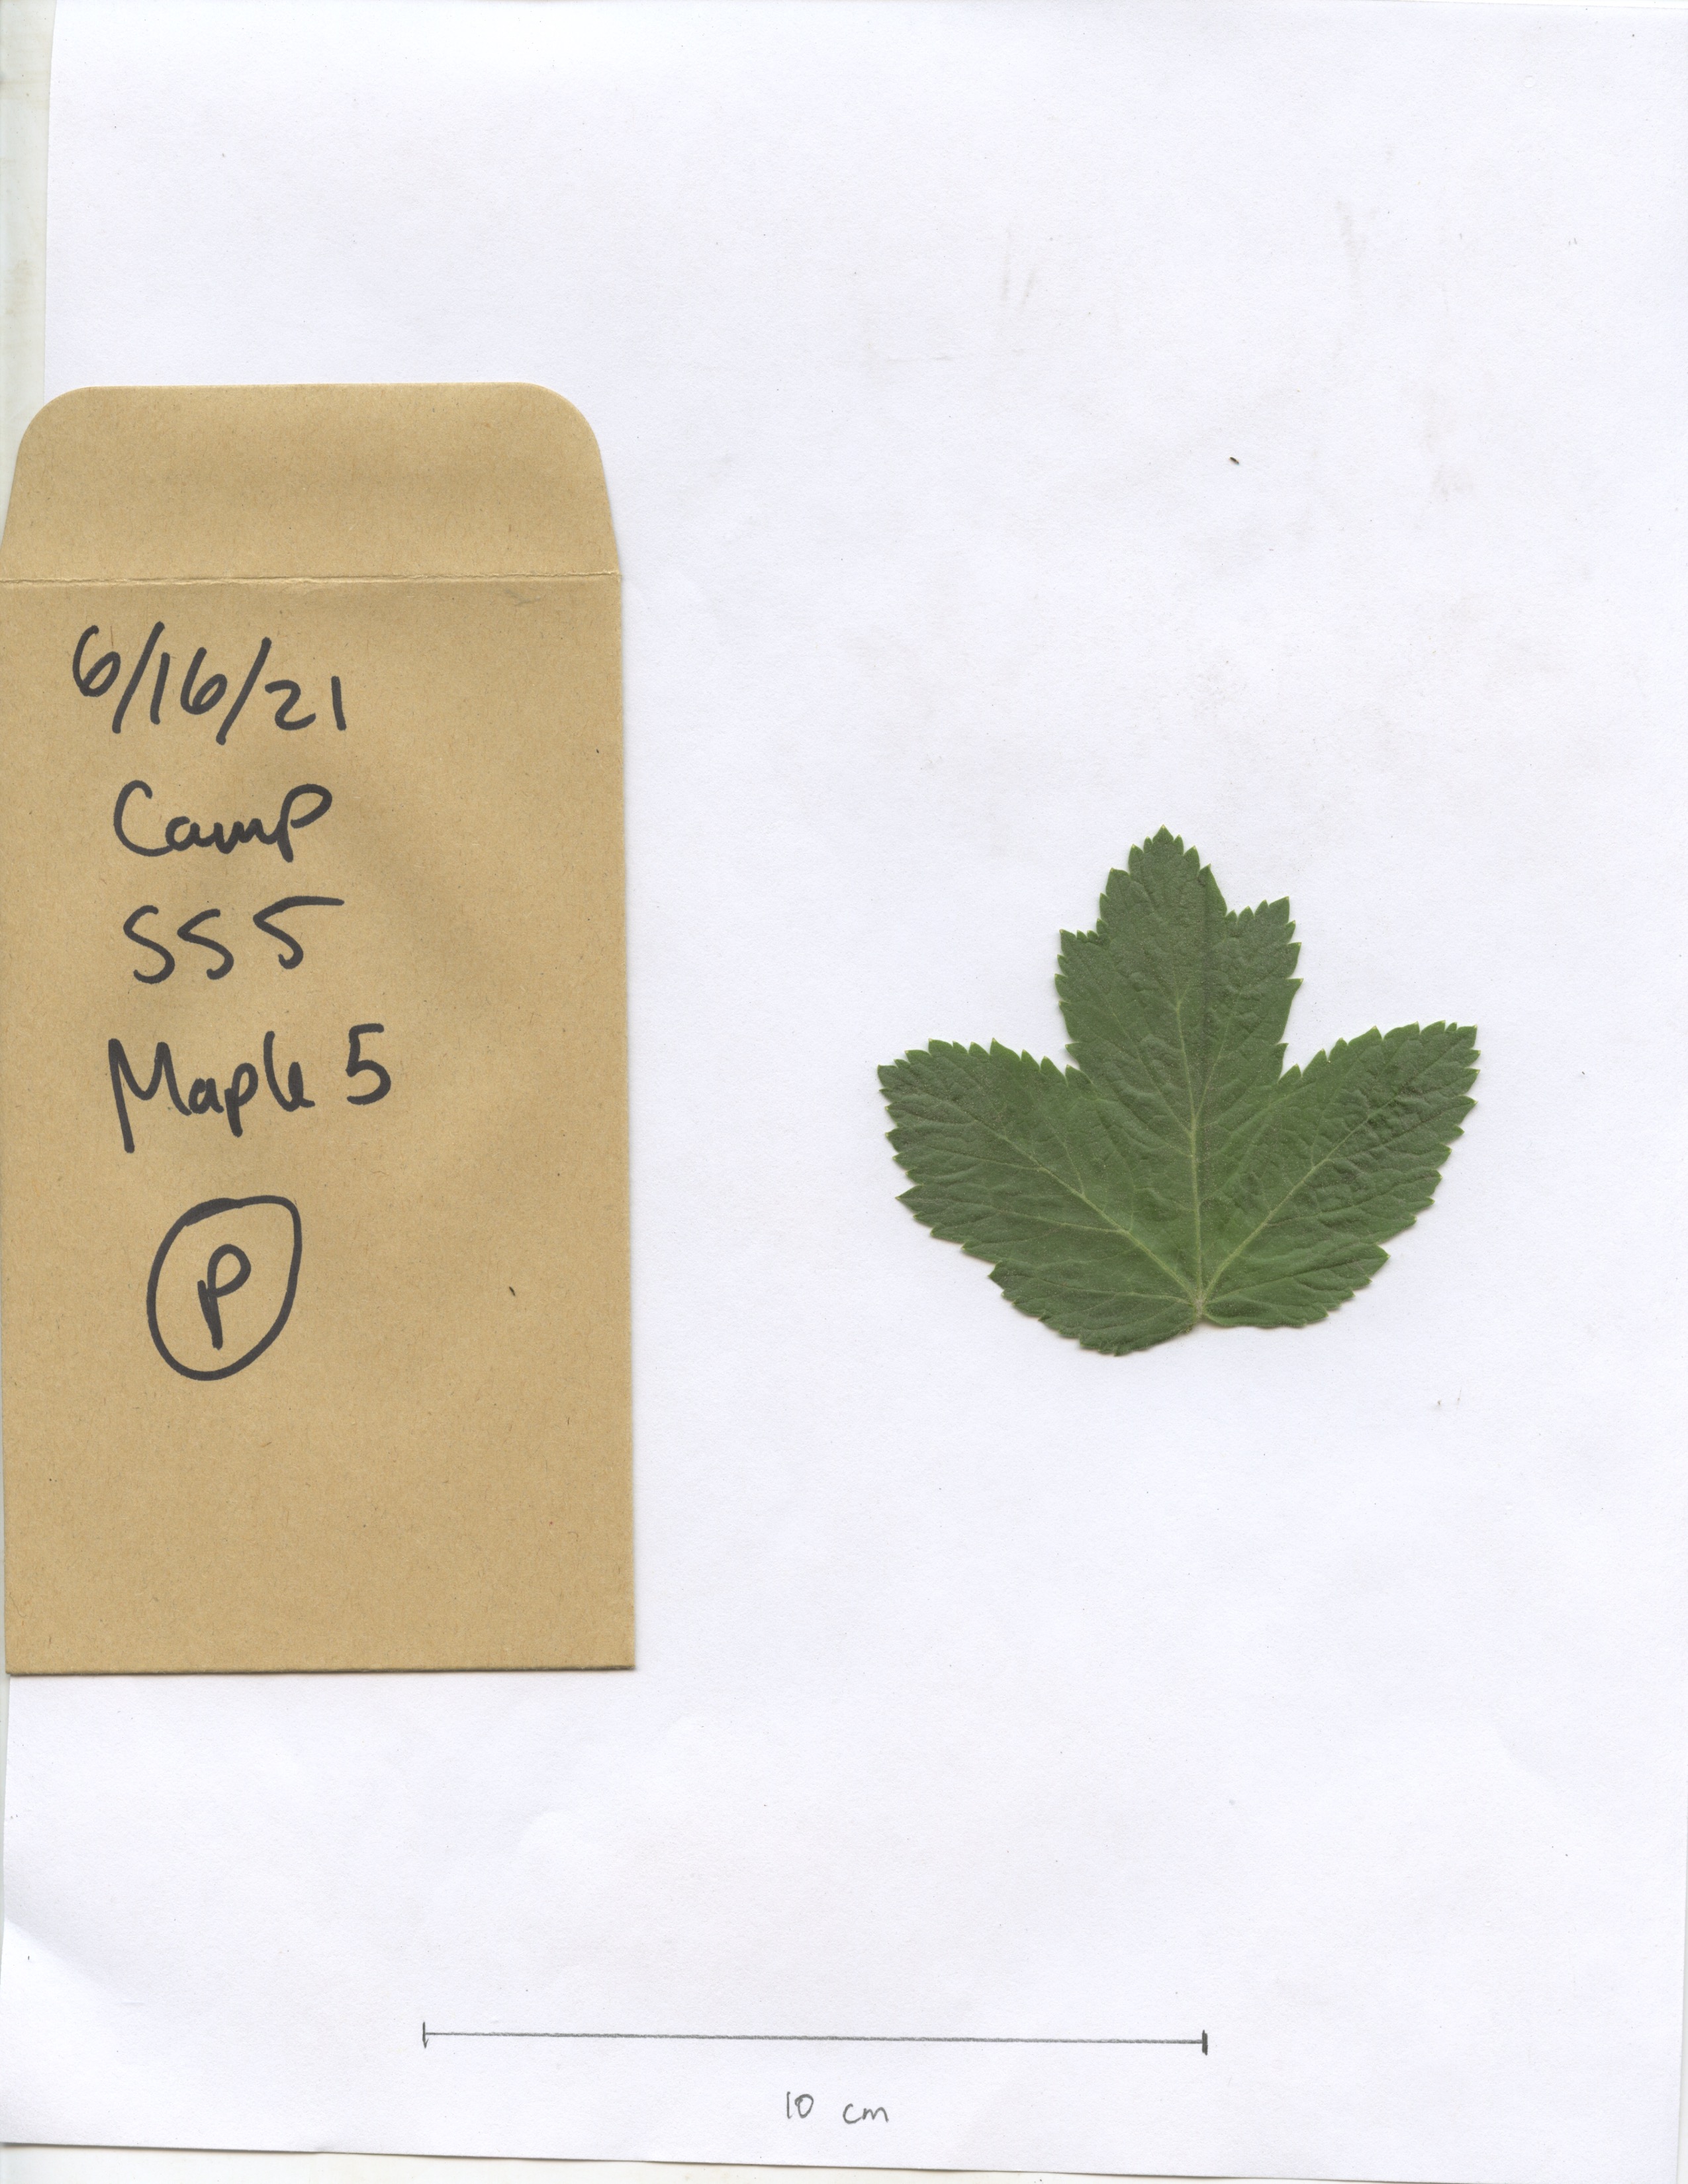 6/16/21
Camp
SS5
Maple 5
P
10 cm